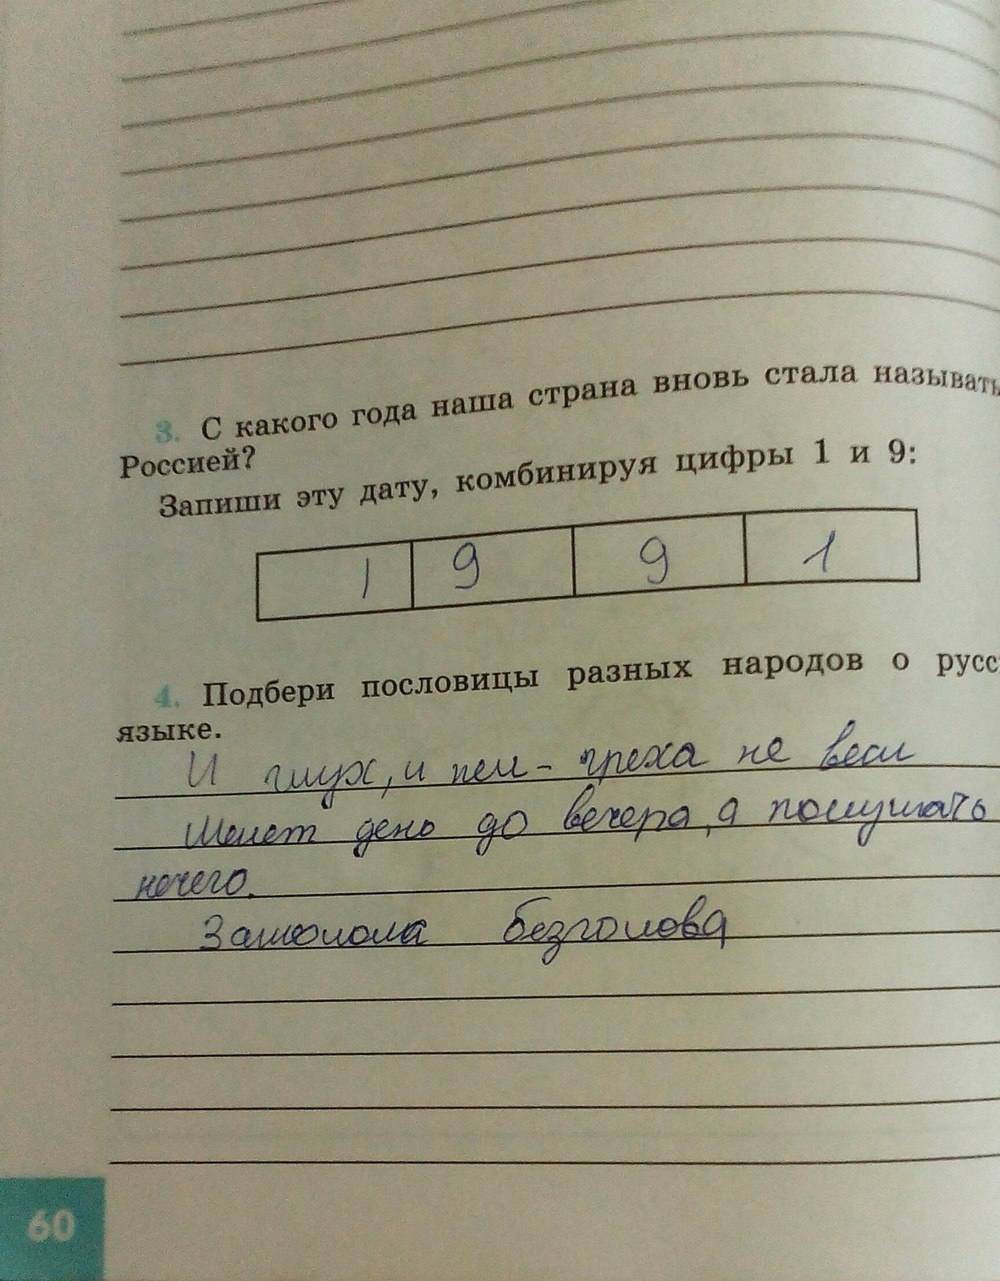 3. С какого года наша страна вновь стала называть
Россией?
Запиши эту дату, комбинируя цифры 1 и 9:
1 9 9 1
4. Подбери пословицы разных народов о русс
языке.
И глух, и нем - греха не веем
Мелет день до вечера, а послушать
нечего.
Замолола безголова
60